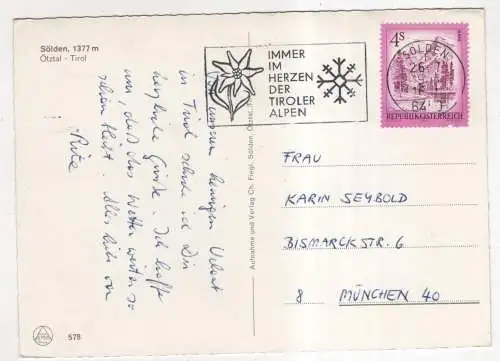 Sölden, 1377 m
Ötztal - Tirol
IMMER
IM
HERZEN
DER
TIROLER
ALPEN
4 S
SÖLDEN
REPUBLIK ÖSTERREICH
meinem kurzen Urlaub
in Tirol sende ich Dir
herzliche Grüße. Ich hoffe
nur, daß das Wetter weiter so
schön bleibt. Alles Liebe von
Aufnahme und Verlag Ch. Fiegl, Sölden, Ötztal
FRAU
KARIN SEYBOLD
BISMARCKSTR. 6
8 MÜNCHEN 40
578